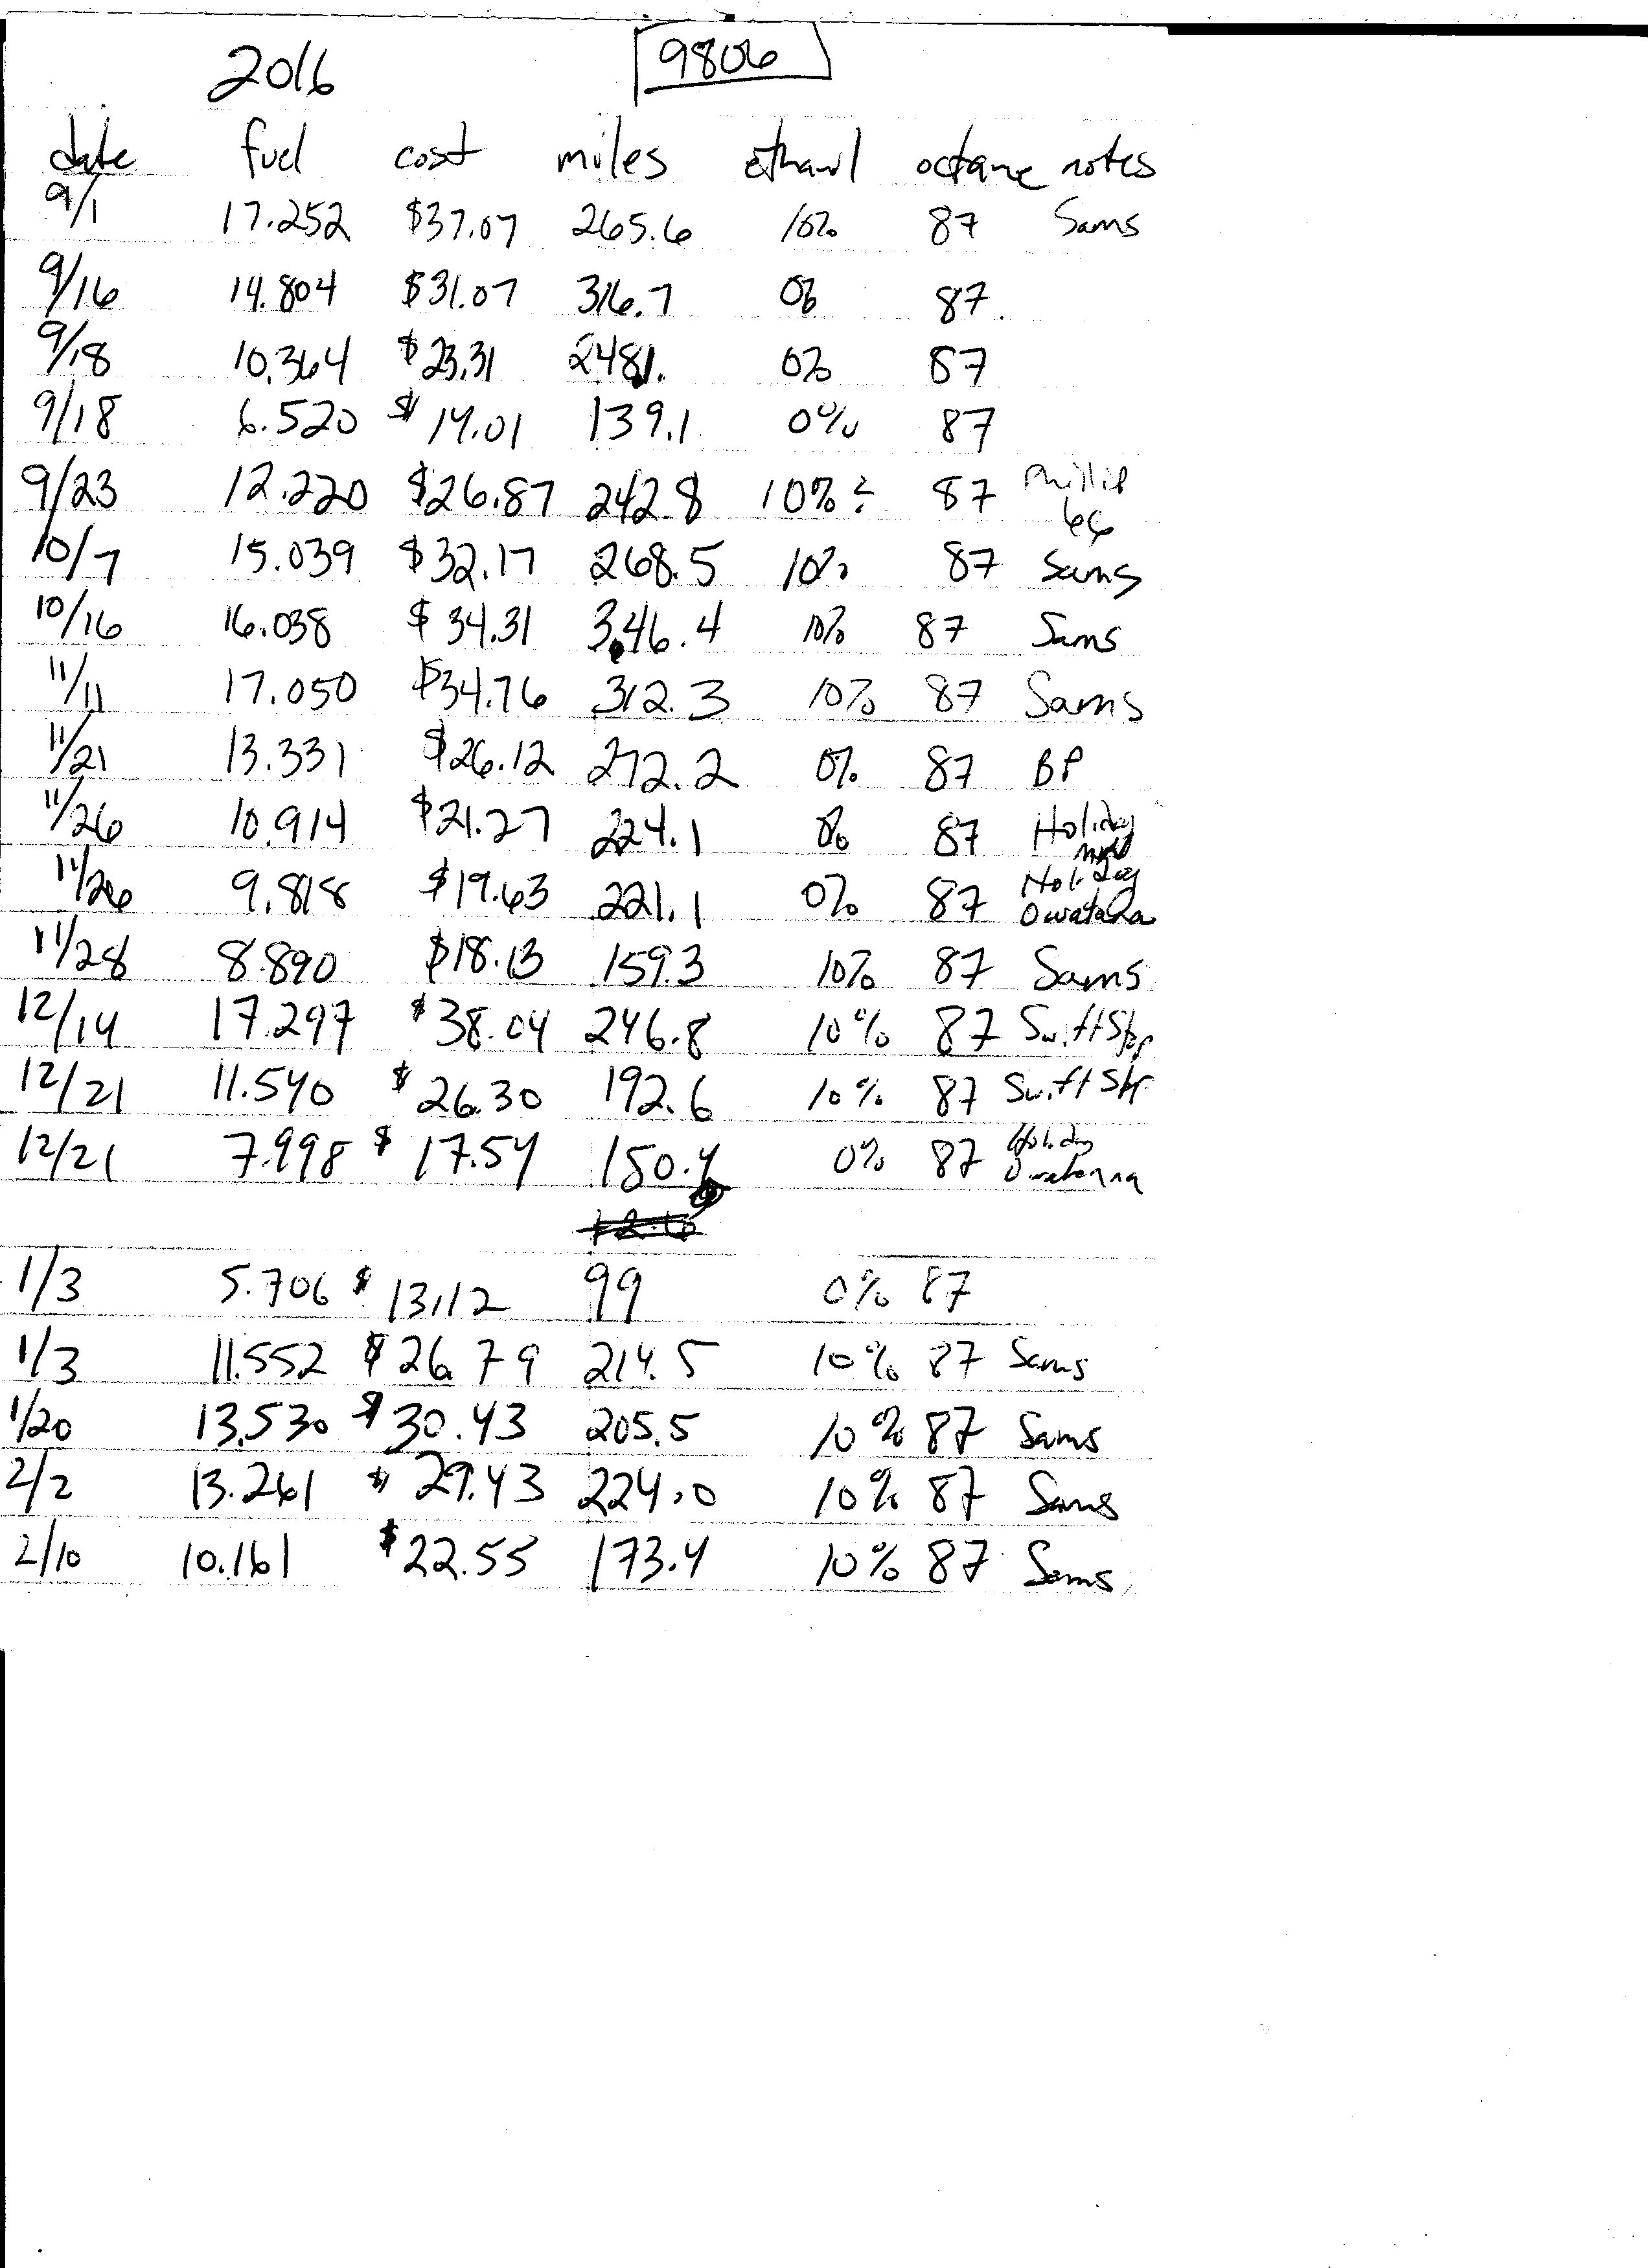 2016 9806
date fuel cost miles ethanol octane notes
9/1 17.252 $37.07 265.6 10% 87 Sams
9/16 14.804 $31.07 316.7 0% 87
9/18 10.364 $23.31 248.1 0% 87
9/18 6.520 $14.01 139.1 0% 87
9/23 12.220 $26.87 242.8 10%? 87 Phillip 66
10/7 15.039 $32.17 268.5 10% 87 Sams
10/16 16.038 $34.31 346.4 10% 87 Sams
11/11 17.050 $34.76 312.3 10% 87 Sams
11/21 13.331 $26.12 272.2 0% 87 BP
11/26 10.914 $21.27 224.1 0% 87 Holiday
11/26 9.818 $19.63 221.1 0% 87 Holiday Owatana
11/28 8.890 $18.13 159.3 10% 87 Sams
12/14 17.297 $38.04 246.8 10% 87 Swift Stop
12/21 11.540 $26.30 192.6 10% 87 Swift Stop
12/21 7.998 $17.54 150.4 0% 87 Holiday Owatonna
1/3 5.706 $13.12 99 0% 87
1/3 11.552 $26.79 214.5 10% 87 Sams
1/20 13.530 $30.43 205.5 10% 87 Sams
2/2 13.261 $29.43 224.0 10% 87 Sams
2/10 10.161 $22.55 173.4 10% 87 Sams